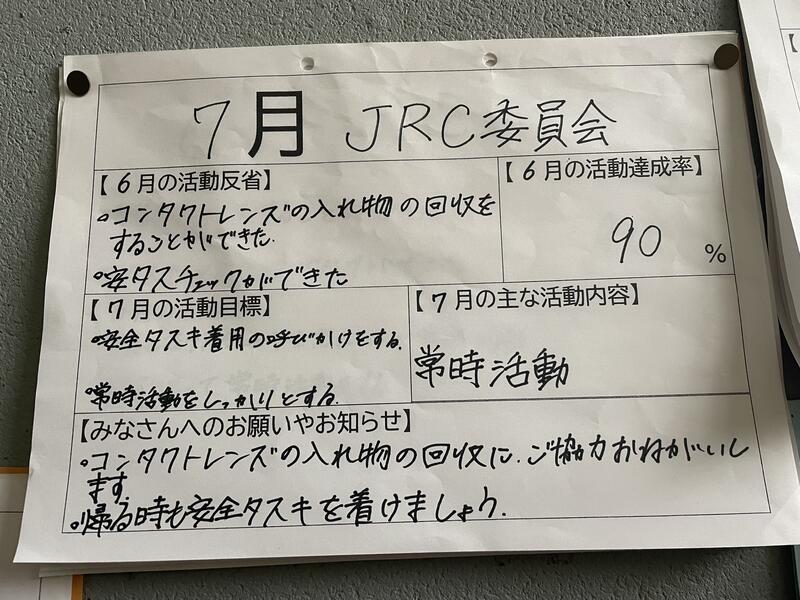 7月 JRC委員会
【6月の活動反省】
。コンタクトレンズの入れ物の回収を
することができた.
。安タスチェックができた
【6月の活動達成率】
90 %
【7月の活動目標】
。安全タスキ着用の呼びかけをする.
。常時活動をしっかりとする.
【7月の主な活動内容】
常時活動
【みなさんへのお願いやお知らせ】
。コンタクトレンズの入れ物の回収に.ご協力おねがいし
ます.
。帰る時も安全タスキを着けましょう.